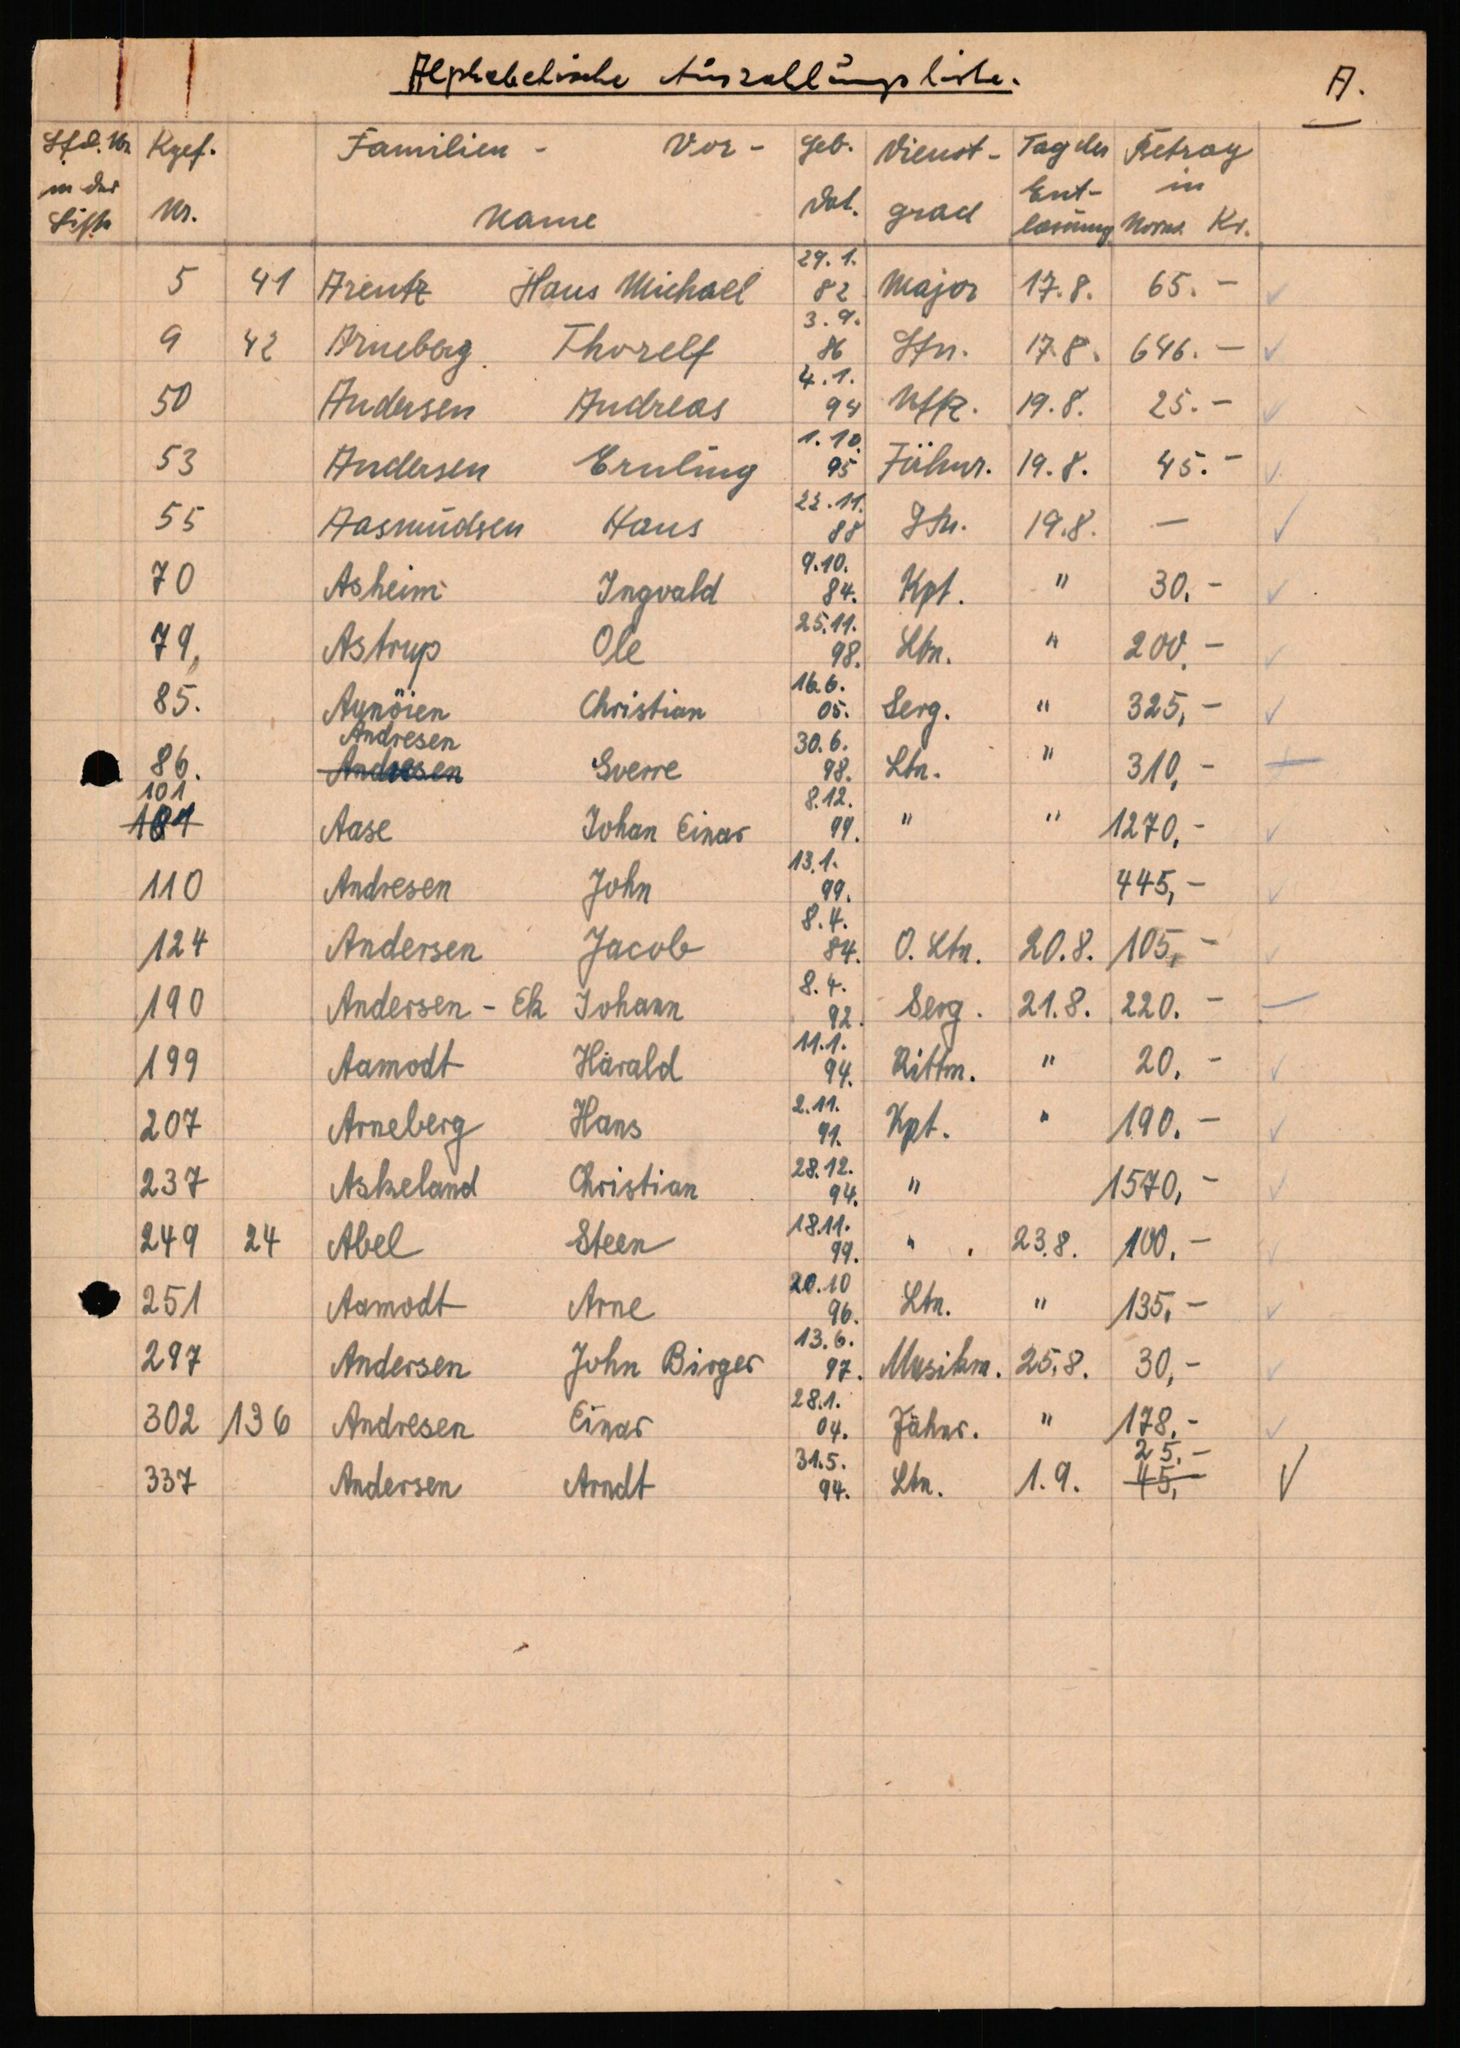 Alphabetische Auszahlungsliste. A.
Lfd. Nr. in der Liste Kgef. Nr. Familien- Vor- Name Geb. Dat. Dienst-grad Tag der Ent-lassung Betrag in Norw. Kr.
5 41 Arentz Hans Michael 29.1.82 Major 17.8. 65.-
9 42 Arneberg Thorelf 3.9.86 Ltn. 17.8. 646.-
50 Andersen Andreas 4.1.94 Uffz. 19.8. 25.-
53 Andersen Eruling 1.10.95 Fähnr. 19.8. 45.-
55 Aasmudsen Hans 22.11.88 Ltn. 19.8. -
70 Asheim Ingvald 9.10.84. Kpt. " 30.-
79, Astrup Ole 25.11.98. Ltn. " 200.-
85. Aunöien Christian 16.6.05. Serg. " 325,-
Andresen
86. Andresen Sverre 30.6.98. Ltn. " 310,-
101
181 Aase Johan Einar 8.12.99. " " 1270,-
110 Andresen John 13.1.99. 445,-
124 Andersen Jacob 8.4.84. O. Ltn. 20.8. 105,-
190 Andersen - Ek Johann 8.4.92. Serg. 21.8. 220.-
199 Aamodt Harald 11.1.94. Rittm. " 20,-
207 Arneberg Hans 2.11.91. Kpt. " 190.-
237 Askeland Christian 28.12.94. " 1570,-
249 24 Abel Steen 18.11.99. " . 23.8. 100,-
251 Aamodt Arne 20.10 96. Ltn. " 135,-
297 Andersen John Birger 13.6.97. Musikm. 25.8. 30,-
302 136 Andresen Einar 28.1.04. Fähnr. " 178,-
25,-
337 Andersen Arndt 31.5.94. Ltn. 1.9. 45,-